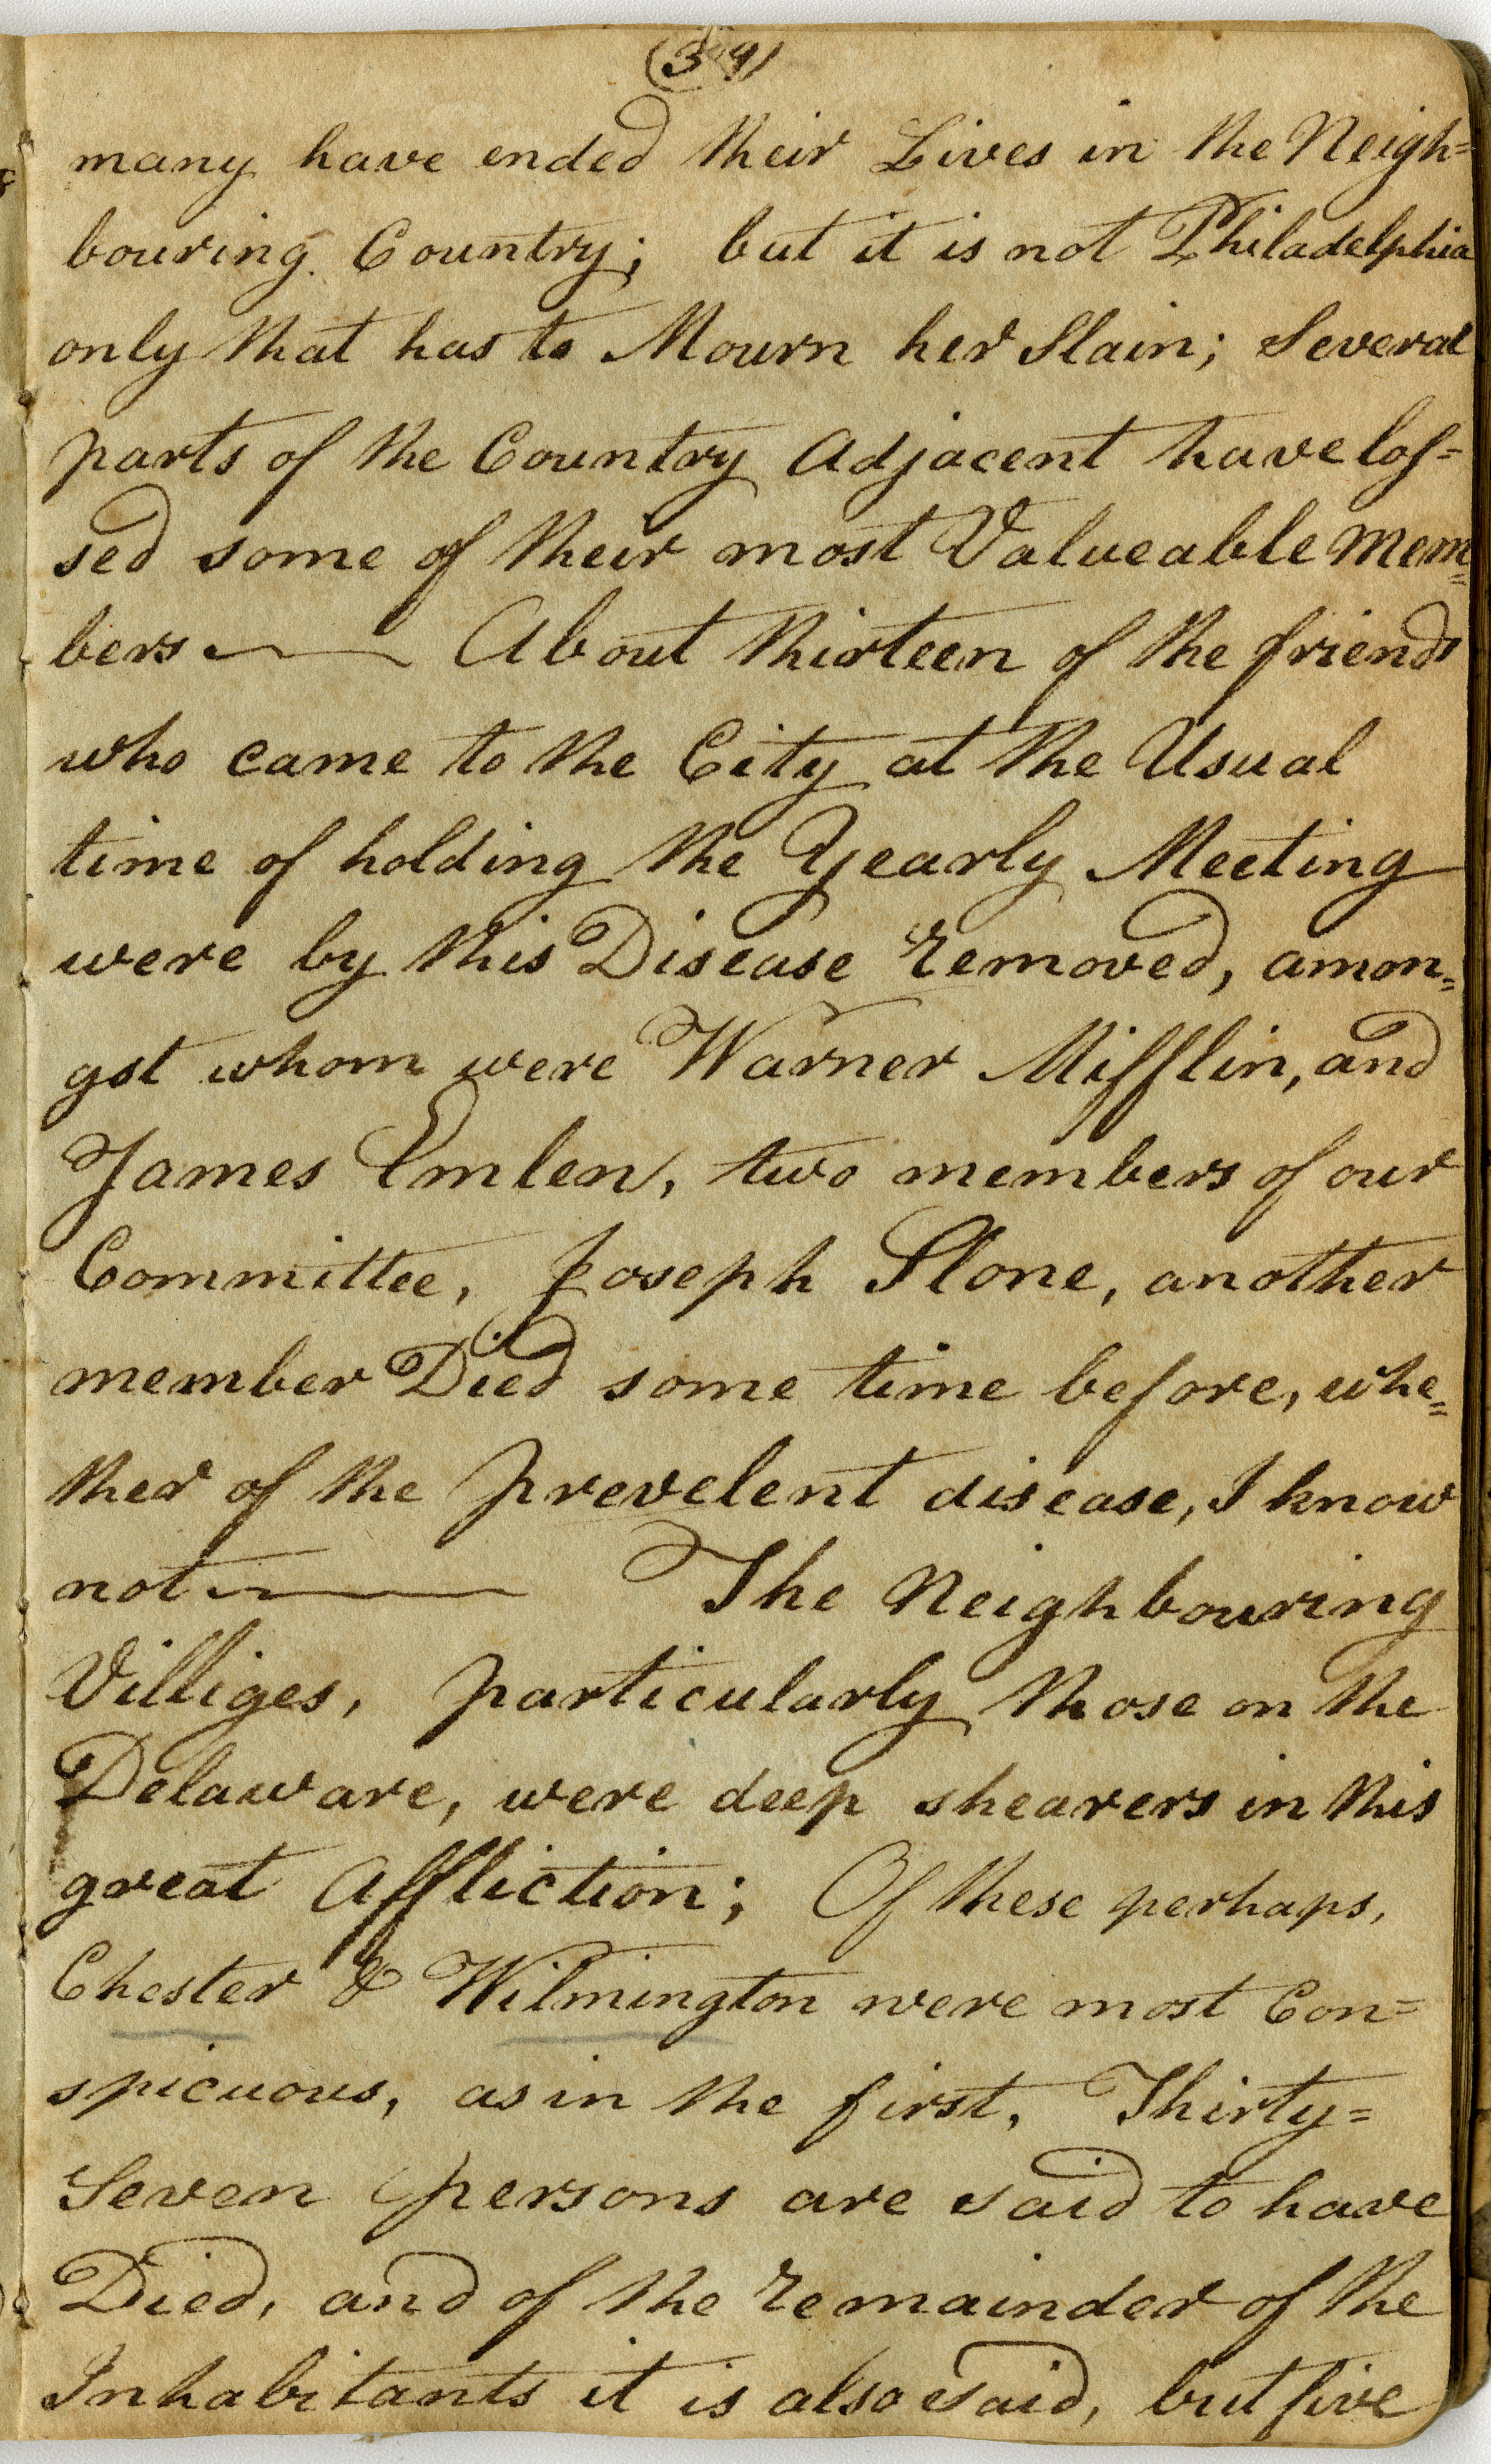 (39)
many have ended their Lives in the Neigh=
bouring Country; but it is not Philadelphia
only that has to Mourn her Slain; Several
parts of the Country Adjacent have los=
sed some of their most Valueable Mem=
bers —— About thirteen of the friends
who came to the City at the Usual
time of holding the Yearly Meeting
were by this Disease removed, amon=
gst whom were Warner Mifflin, and
James Emlen, two members of our
Committee, Joseph Slone, another
member Died some time before, whe=
ther of the prevelent disease, I know
not —— The Neighbouring
Villiges, particularly those on the
Delaware, were deep shearers in this
great Affliction; Of these perhaps,
Chester & Wilmington were most Con=
spicuous, as in the first, Thirty=
Seven persons are said to have
Died, and of the remainder of the
Inhabitants it is also said, but five